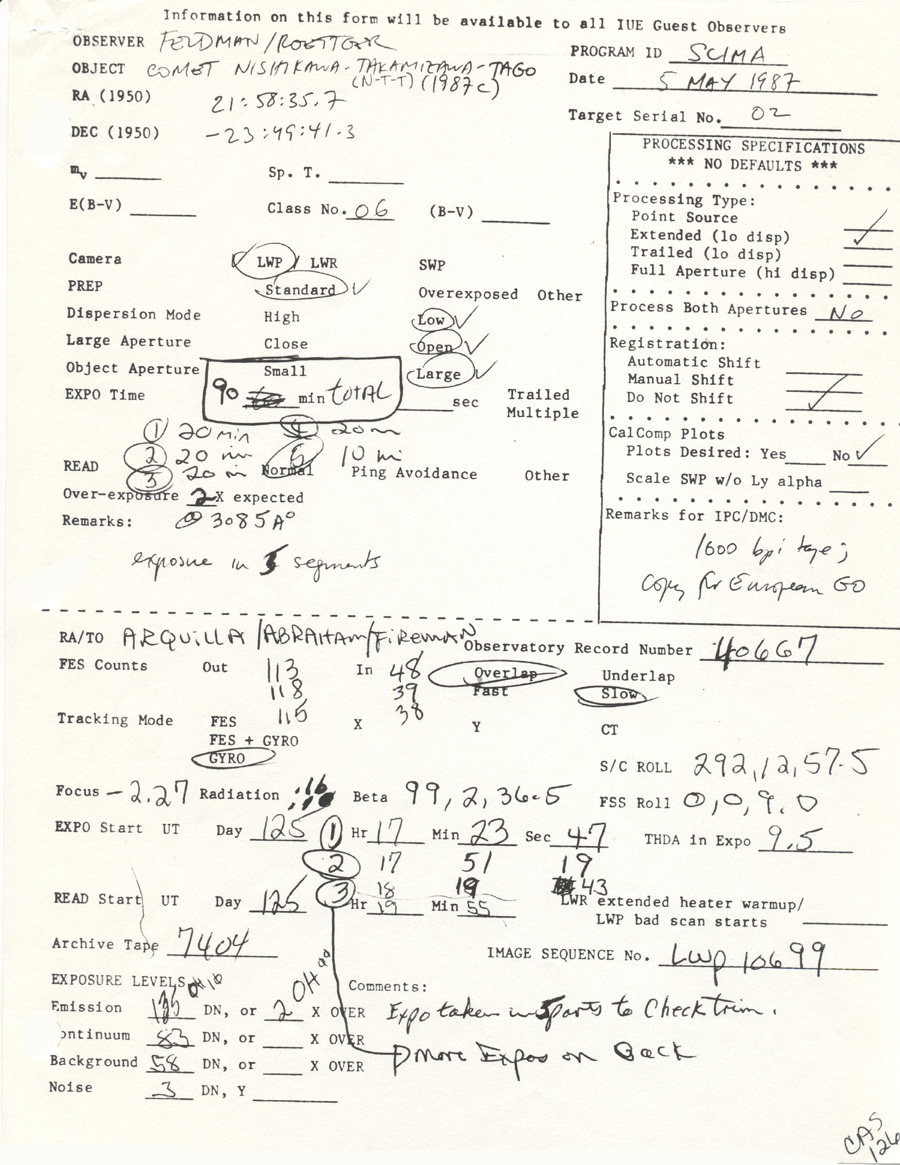 Information on this form will be available to all IUE Guest Observers
OBSERVER FELDMAN/ROETTGER
PROGRAM ID SCIMA
OBJECT COMET NISHIKAWA-TAKAMIZAWA-TAGO
(N-T-T) (1987c)
Date 5 MAY 1987
RA (1950) 21:58:35.7
Target Serial No. 02
DEC (1950) -23:49:41.3
PROCESSING SPECIFICATIONS
*** NO DEFAULTS ***
mv Sp. T.
E(B-V) Class No. 06 (B-V)
Processing Type:
Point Source
Extended (lo disp) ✓
Trailed (lo disp)
Full Aperture (hi disp)
Camera ✓ LWP / LWR SWP
PREP Standard ✓ Overexposed Other
Dispersion Mode High Low ✓
Large Aperture Close Open ✓
Object Aperture Small Large ✓
EXPO Time 90 min TOTAL sec Trailed
Multiple
Process Both Apertures NO
Registration:
Automatic Shift
Manual Shift
Do Not Shift ✓
① 20 min ④ 20 m
② 20 min ⑤ 10 mi
③ 20 m
READ Normal Ping Avoidance Other
CalComp Plots
Plots Desired: Yes No ✓
Scale SWP w/o Ly alpha
Over-exposure 2X expected
Remarks: @ 3085A°
exposure in 5 segments
Remarks for IPC/DMC:
1600 bpi tape;
Copy for European GO
RA/TO ARQUILLA/ABRAHAM/FIREMAN
Observatory Record Number 40667
FES Counts Out 113 In 48 Overlap Underlap
118 39 Fast Slow
115 38
Tracking Mode FES X Y CT
FES + GYRO
GYRO
S/C ROLL 292,12,57.5
Focus -2.27 Radiation Beta 99,2,36.5 FSS Roll 0,0,9.0
EXPO Start UT Day 125 ① Hr 17 Min 23 Sec 47 THDA in Expo 9.5
② 17 51 19
③ 18 19 43
READ Start UT Day 125 Hr 19 Min 55 LWR extended heater warmup/
LWP bad scan starts
Archive Tape 7404
IMAGE SEQUENCE No. LWP 10699
EXPOSURE LEVELS Comments:
Emission DN, or 2 X OVER Expo taken in 5 parts to Check trim.
ontinuum 83 DN, or X OVER
More Expos on Back
Background 58 DN, or X OVER
Noise 3 DN, Y
CAS